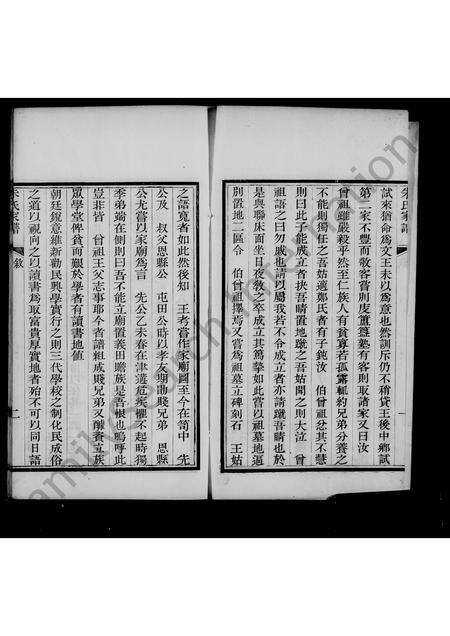 朱氏家譜
試來猶命爲文王未以爲意也然訓斥仍不稍貸王後中鄉試
第二家不豐而敬客嘗則皮薑豉鹽塾有客則取諸家又曰汝
曾祖雖嚴毅乎然至仁族人有貧寡若孤露輒約兄弟分養之
不能則專任之吾姑適鄭氏者有子鈍汝 伯曾祖忿其不慧
則曰此子能成立者抉吾睛置地蹴之吾姑聞之則大泣 曾
祖語之曰勿慼也請以屬我若不令成立者亦請蹴吾睛也於
是與聯床而坐日夜敎之卒成立其篤摯如此嘗以祖墓地逼
別置地二區令 伯曾祖擇焉又嘗爲祖墓立碑刻石 王姑
之語寬者如此然後知 王考嘗作家廟圖至今在笥中 先
公及 叔父恩縣公 屯田公時時以孝友期勛賤兄弟 恩縣
公尤嘗以家廟爲言 先公乙未春在津遘危疾擢不起時獨
季弟端在側則曰吾不能立廟置義田贍族是吾恨也嗚呼此
豈非皆 曾祖王父志事耶今者譜粗成賤兄弟又釀資立族
眾學堂俾貧而艱於學者有讀書地值
朝廷銳意維新勸民興學實行之則三代學校之制化民成俗
之道以視向之以讀書爲取富貴厚實地者殆不可以同日語
朱氏家譜 敘 二